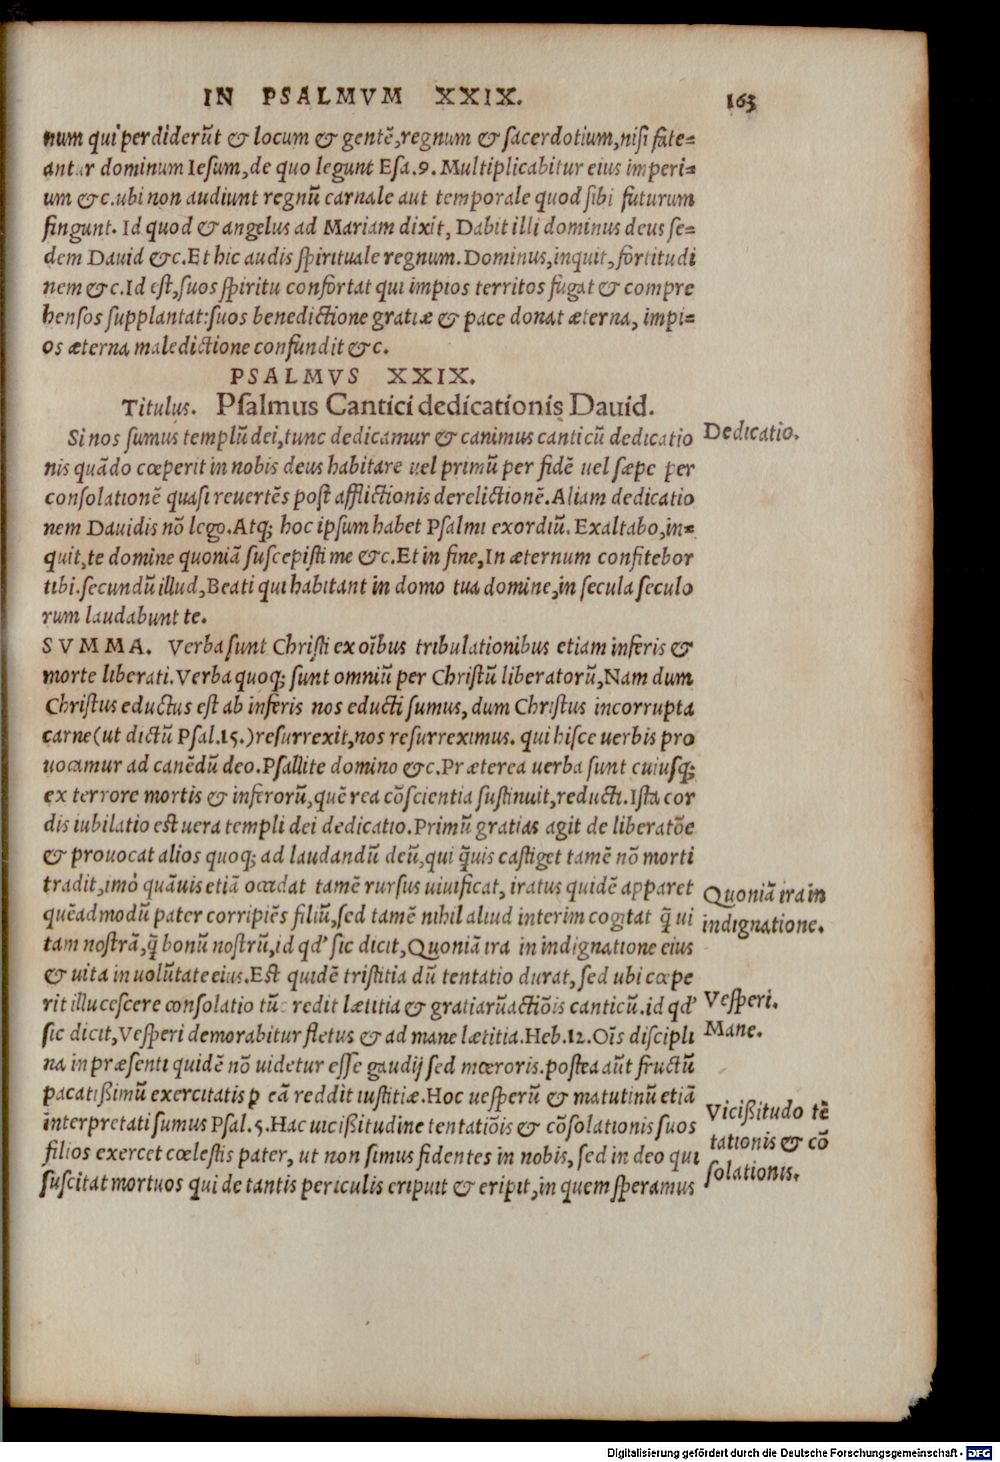 IN PSALMVM XXIX. 163
num qui perdiderūt & locum & gentē, regnum & sacerdotium, nisi fate=
antur dominum Iesum, de quo legunt Esa.9. Multiplicabitur eius imperi=
um &c. ubi non audiunt regnū carnale aut temporale quod sibi futurum
fingunt. Id quod & angelus ad Mariam dixit, Dabit illi dominus deus se=
dem Dauid &c. Et hic audis spirituale regnum. Dominus, inquit, fortitudi
nem &c. Id est, suos spiritu confortat qui impios territos fugat & compre
hensos supplantat: suos benedictione gratiæ & pace donat æterna, impi=
os æterna maledictione confundit &c.
PSALMVS XXIX.
Titulus. Psalmus Cantici dedicationis Dauid.
Si nos sumus templū dei, tunc dedicamur & canimus canticū dedicatio
Dedicatio.
nis quādo cœperit in nobis deus habitare uel primū per fidē uel sæpe per
consolationē quasi reuertēs post afflictionis derelictionē. Aliam dedicatio
nem Dauidis nō lego. Atq; hoc ipsum habet Psalmi exordiū. Exaltabo, in=
quit, te domine quoniā suscepisti me &c. Et in fine, In æternum confitebor
tibi. secundū illud, Beati qui habitant in domo tua domine, in secula seculo
rum laudabunt te.
SVMMA. Verba sunt Christi ex oībus tribulationibus etiam inferis &
morte liberati. Verba quoq; sunt omniū per Christū liberatorū, Nam dum
Christus eductus est ab inferis nos educti sumus, dum Christus incorrupta
carne (ut dictū Psal.15.) resurrexit, nos resurreximus. qui hisce uerbis pro
uocamur ad canēdū deo. Psallite domino &c. Præterea uerba sunt cuiusq;
ex terrore mortis & inferorū, quē rea cōscientia sustinuit, reducti. Ista cor
dis iubilatio est uera templi dei dedicatio. Primū gratias agit de liberatōe
& prouocat alios quoq; ad laudandū deū, qui q̃uis castiget tamē nō morti
tradit, imò quāuis etiā occidat tamē rursus uiuificat, iratus quidē apparet
Quoniā ira in
quēadmodū pater corripiēs filiū, sed tamē nihil aliud interim cogitat q̃ ui
indignatione.
tam nostrā, q̃ bonū nostrū, id qd' sic dicit, Quoniā ira in indignatione eius
& uita in uolūtate eius. Est quidē tristitia dū tentatio durat, sed ubi cœpe
rit illucescere consolatio tūc redit lætitia & gratiarūactiōis canticū. id qd'
Vesperi.
sic dicit, Vesperi demorabitur fletus & ad mane lætitia. Heb.12. Oīs discipli
Mane.
na in præsenti quidē nō uidetur esse gaudij sed mœroris. postea aūt fructū
pacatißimū exercitatis p eā reddit iustitiæ. Hoc uesperū & matutinū etiā
Vicißitudo tē
interpretati sumus Psal.5. Hac uicißitudine tentatiōis & cōsolationis suos
tationis & cō
filios exercet cœlestis pater, ut non simus fidentes in nobis, sed in deo qui
solationis.
suscitat mortuos qui de tantis periculis eripuit & eripit, in quem speramus
Digitalisierung gefördert durch die Deutsche Forschungsgemeinschaft - DFG